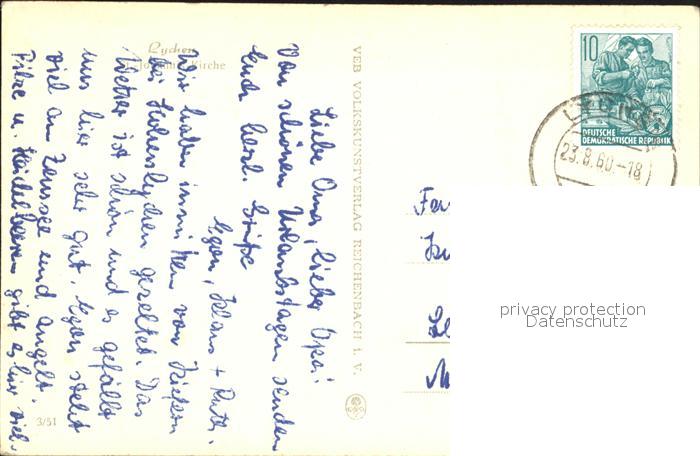 Lychen
Johannis Kirche
Liebe Oma, lieber Opa!
Von schönen Urlaubstagen senden
Euch herzl. Grüße
Egon, Klaus + Ruth.
Wir haben inmitten von Kiefern
bei Hohenlychen gezeltet. Das
Wetter ist schön und es gefällt
uns hier sehr gut. Egon steht
viel am Zenssee und angelt.
Pilze u. Heidelbeeren gibt es hier viel.
3/51
VEB VOLKSKUNSTVERLAG REICHENBACH i. V.
10
DEUTSCHE
DEMOKRATISCHE REPUBLIK
LYCHEN
23.8.60.-18
privacy protection
Datenschutz